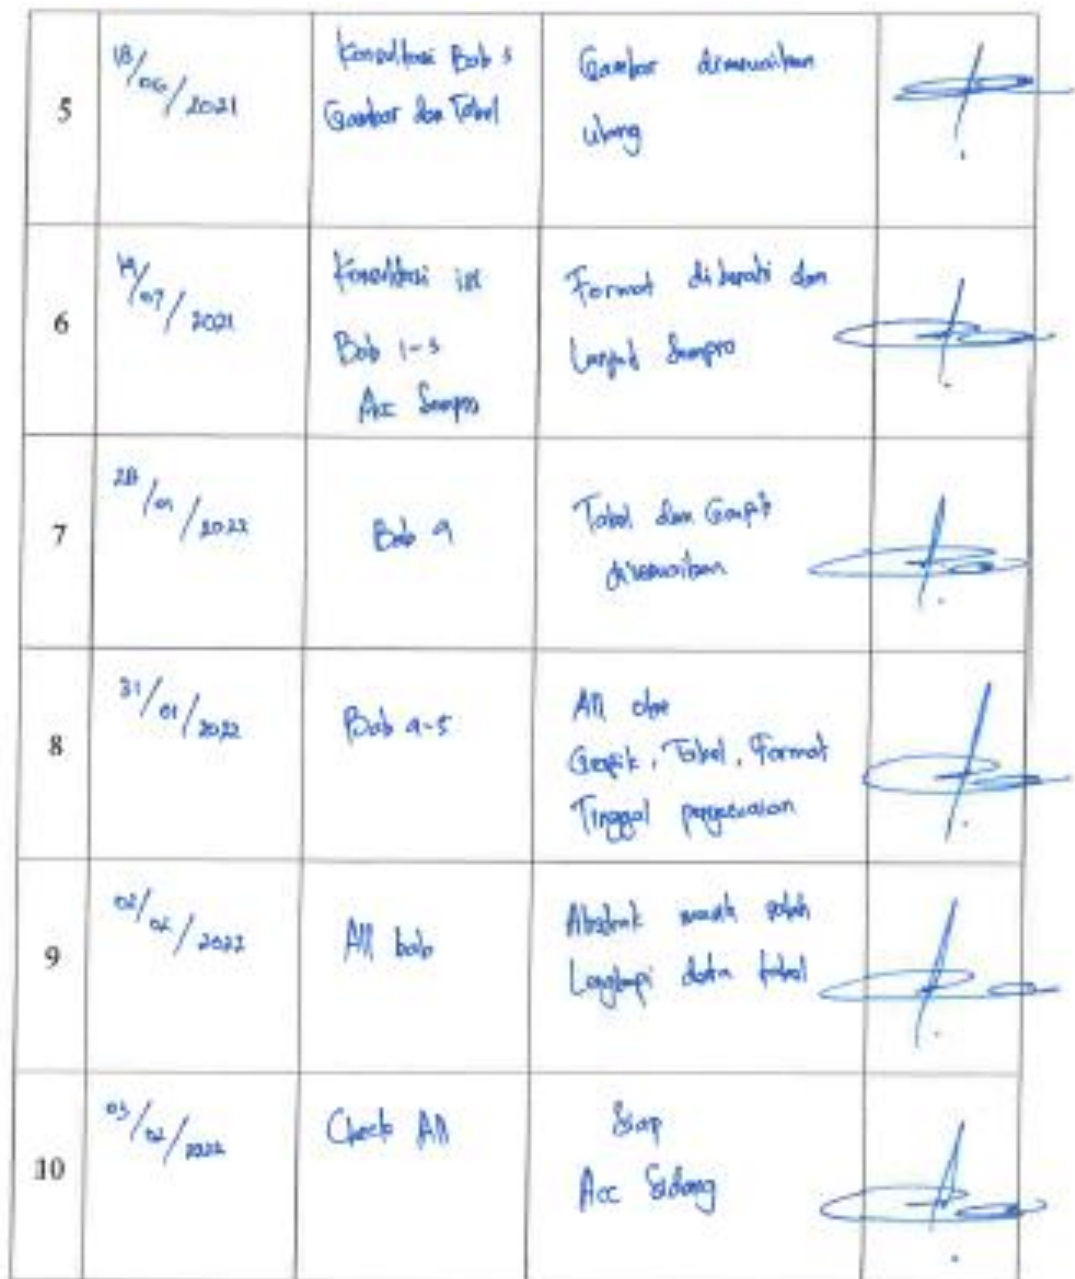 5
18/06/2021
Konsultasi Bab 3
Gambar dan Tabel
Gambar disesuaikan
ulang
6
/07/2021
Konsultasi isi
Bab 1-3
Acc Sempro
Format diperbaiki dan
Lanjut Sempro
7
28/01/2022
Bab 4
Tabel dan Grafik
disesuaikan
8
31/01/2022
Bab 4-5
All oke
Grafik, Tabel, Format
Tinggal penyesuaian
9
02/02/2022
All bab
Abstrak masih salah
Lengkapi data tabel
10
03/02/2022
Check All
Siap
Acc Sidang